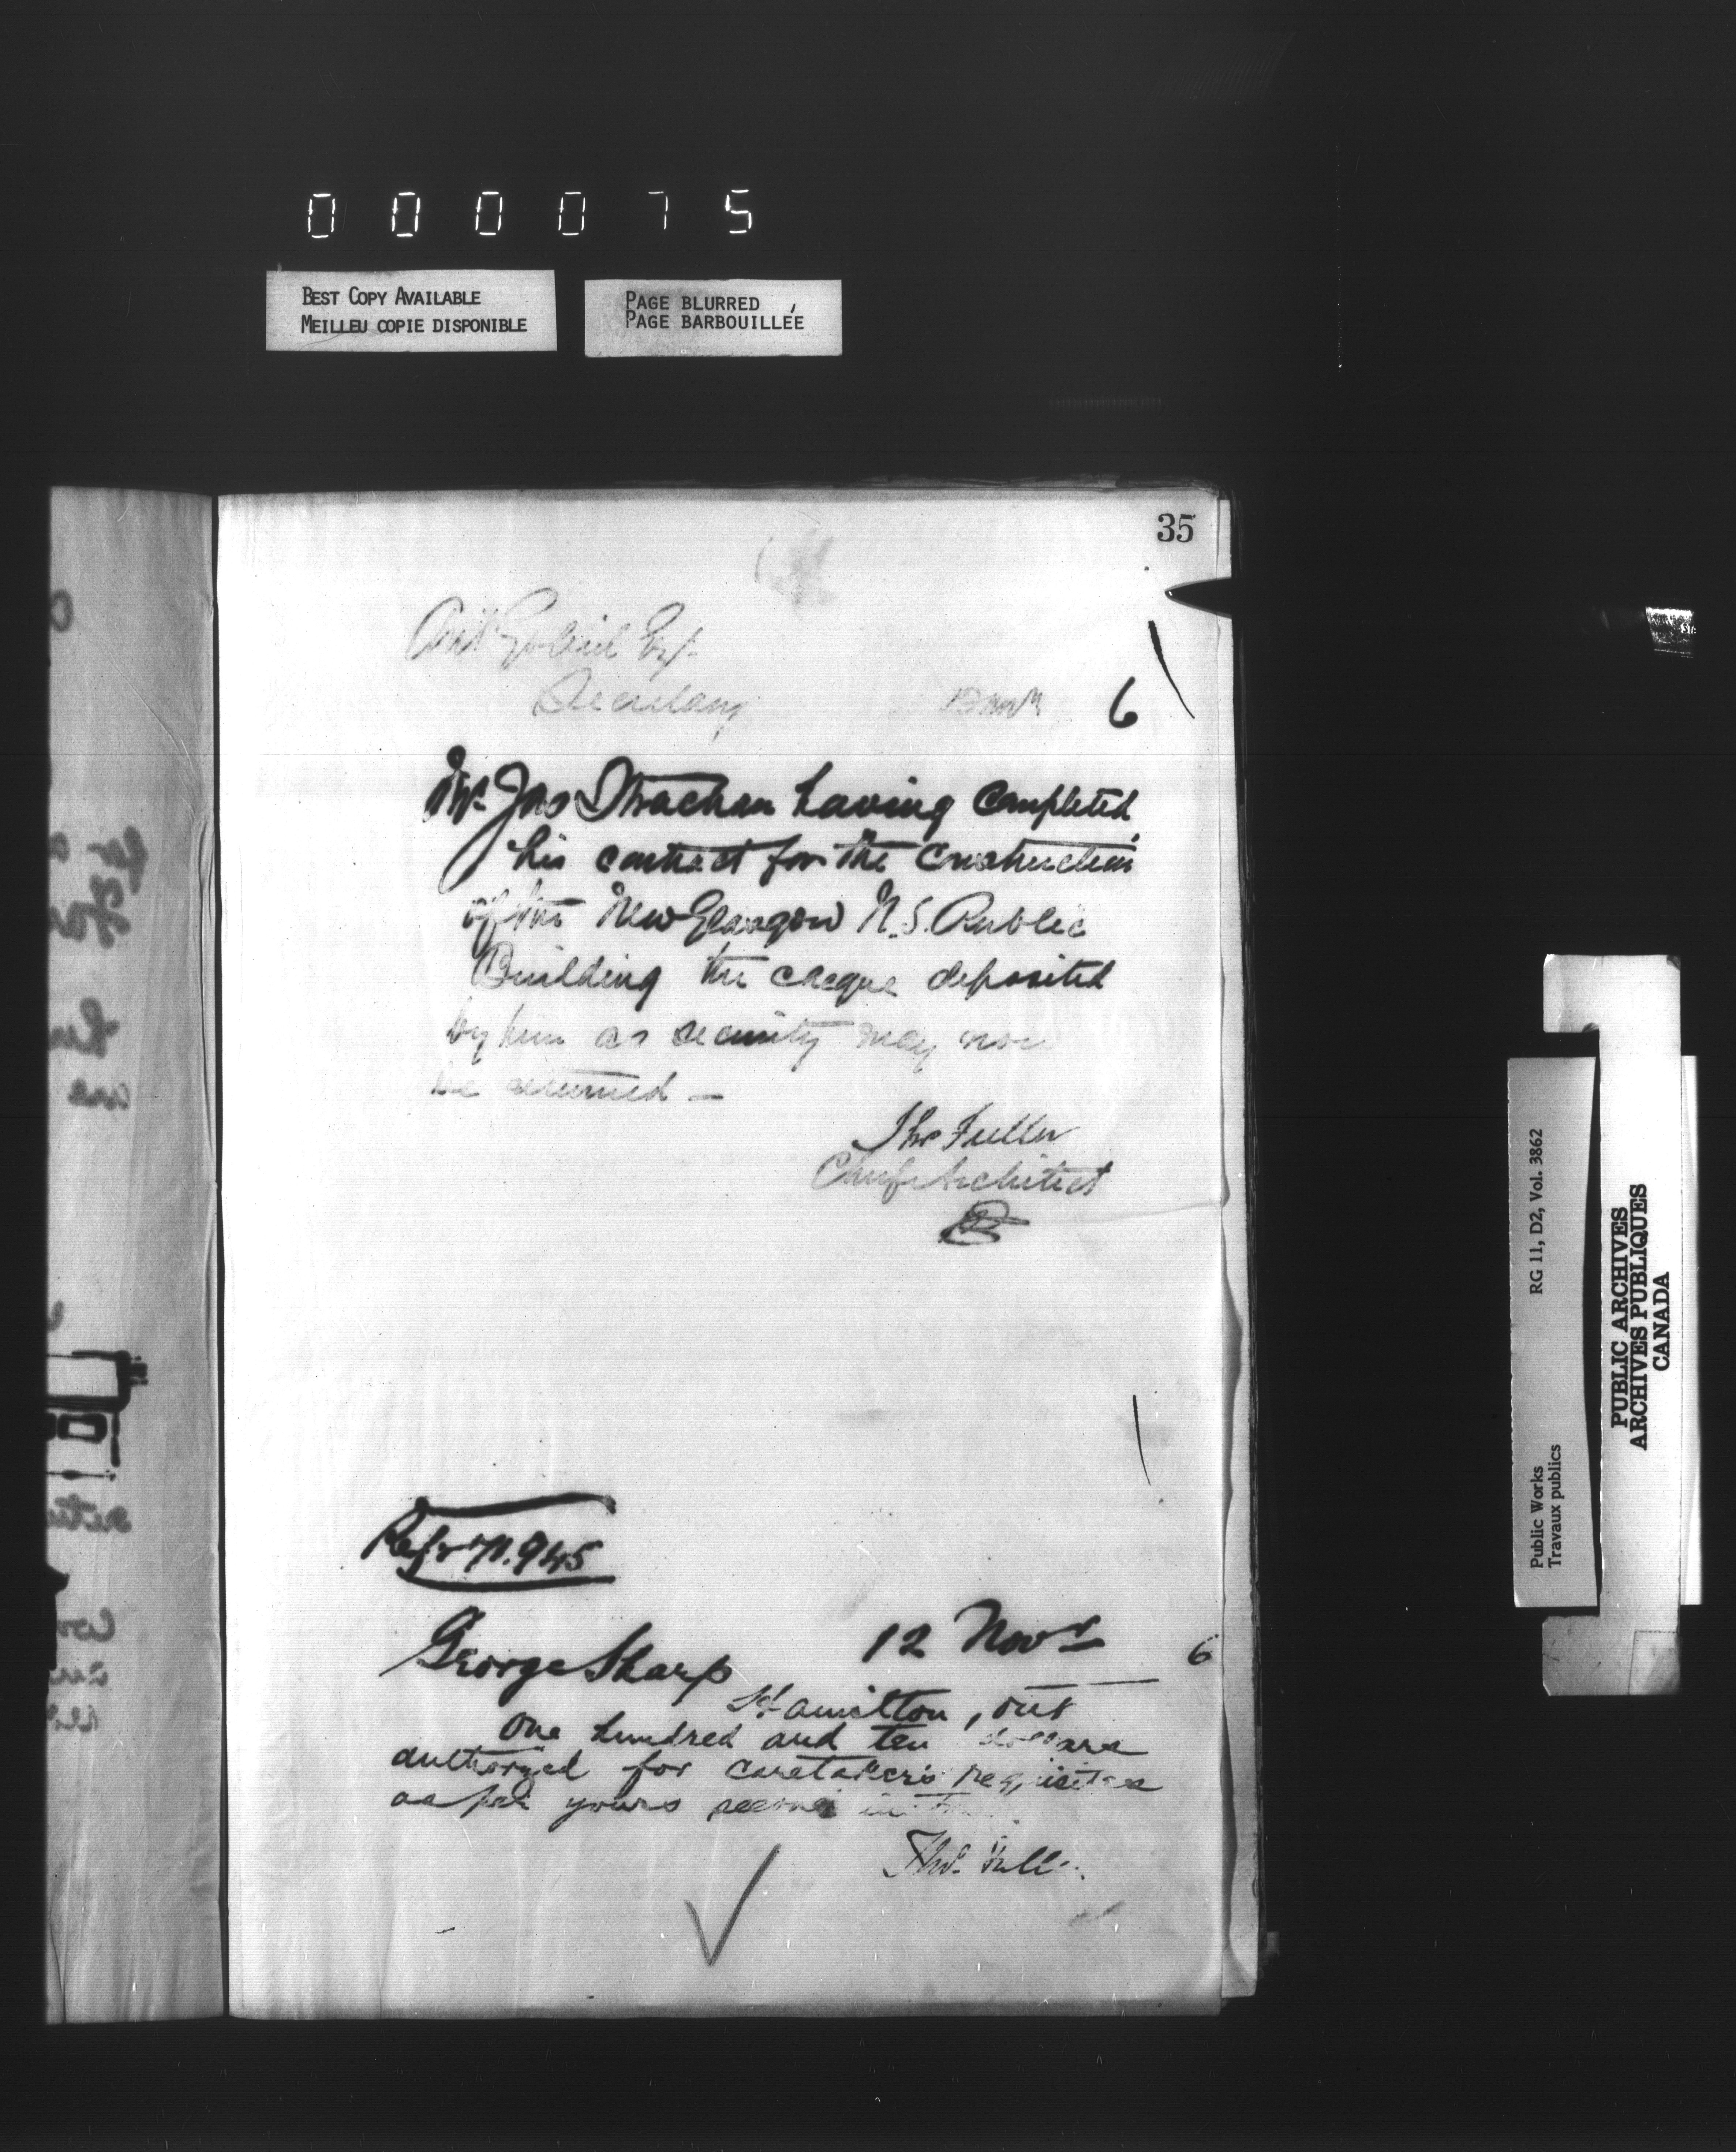 000075
BEST COPY AVAILABLE
MEILLEU COPIE DISPONIBLE
PAGE BLURRED
PAGE BARBOUILLÉE
35
Gobeil Esq.
Secretary 12 Novr 6
Mr. Jas Strachan having completed
his contract for the construction
of the New Glasgow N.S. Public
Building the cheque deposited
by him as security may now
be returned —
Thos Fuller
Chief Architect
Refr 71.945
George Sharp 12 Novr 6
Hamilton, Ont
One hundred and ten dollars
authorized for caretaker's requisites
as per yours second
Thos. Fuller
Public Works RG 11, D2, Vol. 3862
Travaux publics
PUBLIC ARCHIVES
ARCHIVES PUBLIQUES
CANADA